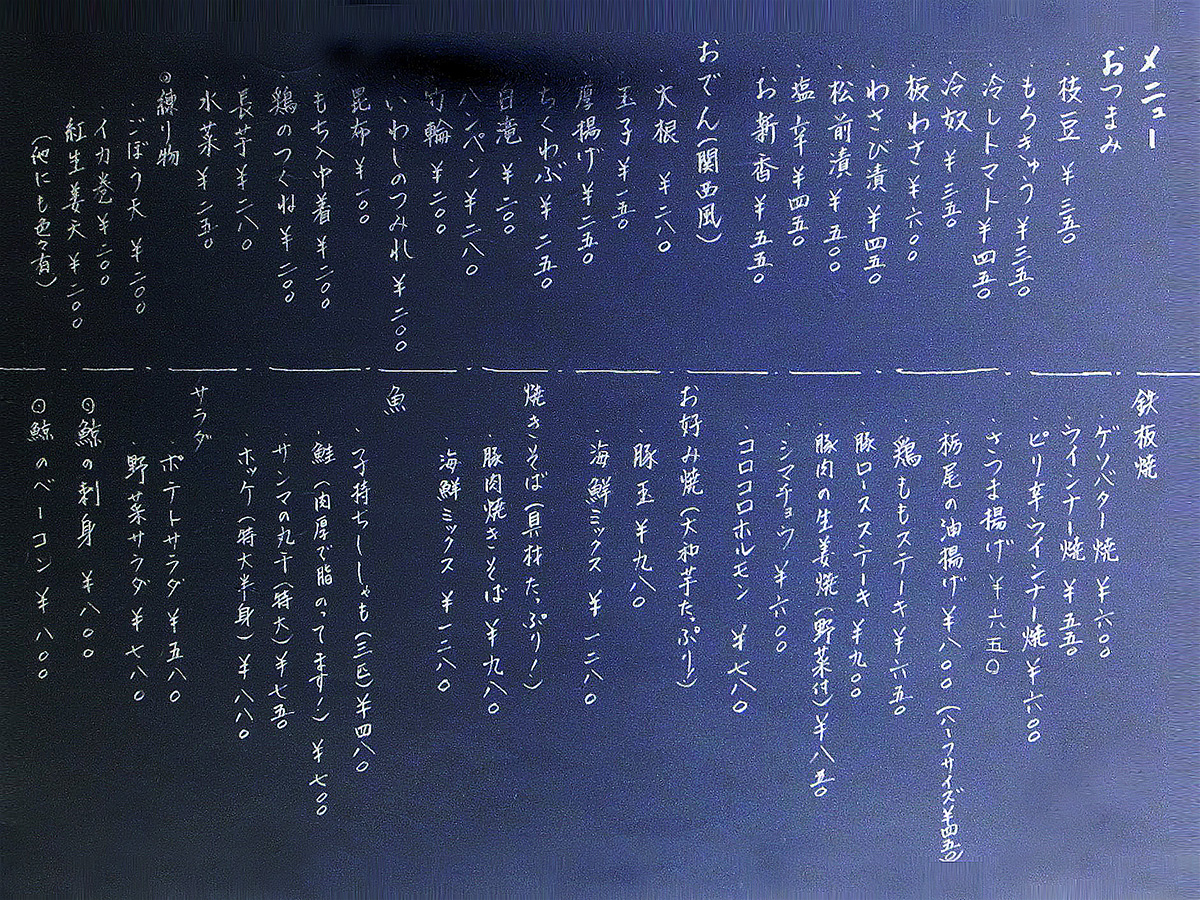 メニュー
おつまみ
・枝豆 ¥三五〇
・もろきゅう ¥三五〇
・冷しトマト ¥四五〇
・冷奴 ¥三五〇
・板わさ ¥六〇〇
・わさび漬 ¥四五〇
・松前漬 ¥五〇〇
・塩辛 ¥四五〇
・お新香 ¥五五〇
おでん(関西風)
・大根 ¥二八〇
・玉子 ¥一五〇
・厚揚げ ¥二五〇
・ちくわぶ ¥二五〇
・白滝 ¥二〇〇
・ハンペン ¥二八〇
・竹輪 ¥二〇〇
・いわしのつみれ ¥二〇〇
・昆布 ¥一〇〇
・もち入巾着 ¥二〇〇
・鶏のつくね ¥二〇〇
・長芋 ¥二八〇
・水菜 ¥二五〇
◎練り物
・ごぼう天 ¥二〇〇
・イカ巻 ¥二〇〇
・紅生姜天 ¥二〇〇
(他にも色々有)
鉄板焼
・ゲソバター焼 ¥六〇〇
・ウインナー焼 ¥五五〇
・ピリ辛ウインナー焼 ¥六〇〇
・さつま揚げ ¥六五〇
・栃尾の油揚げ ¥八〇〇(ハーフサイズ¥四五〇)
・鶏ももステーキ ¥六五〇
・豚ロースステーキ ¥九〇〇
・豚肉の生姜焼(野菜付) ¥八五〇
・シマチョウ ¥六〇〇
・コロコロホルモン ¥七八〇
お好み焼(大和芋たっぷり!)
・豚玉 ¥九八〇
・海鮮ミックス ¥一二八〇
焼きそば(具材たっぷり!)
・豚肉焼きそば ¥九八〇
・海鮮ミックス ¥一二八〇
魚
・子持ちししゃも(三匹) ¥四八〇
・鮭(肉厚で脂のってます!) ¥七〇〇
・サンマの丸干(特大) ¥七五〇
・ホッケ(特大半身) ¥八八〇
サラダ
・ポテトサラダ ¥五八〇
・野菜サラダ ¥七八〇
◎鯨の刺身 ¥八〇〇
◎鯨のベーコン ¥八〇〇